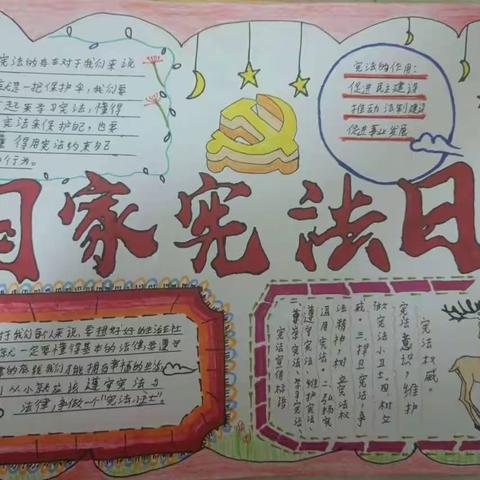 宪法的存在对于我们来说
一把保护伞,我们要
一起来学习宪法,懂得
宪法来保护自己,也要
得用宪法约束自己
行为。
宪法的作用:
促进民主建设
推动法制建设
促进事业发展
国家宪法日
于我们每个人来说,要想好好的生活在社
一定要懂得基本的法律,要遵守
我们才能拥有幸福的生活,
从小就应该遵守宪法与
法律,争做一个“宪法小卫士”。
宪法权威。
宪法意识,维护
做宪法小卫士,树立
三、捍卫宪法,争
法精神,树立宪法权
通用宪法。二、弘扬宪
遵守宪法、维护宪法、
一、尊崇宪法、学习宪法、
宪法宣传标语